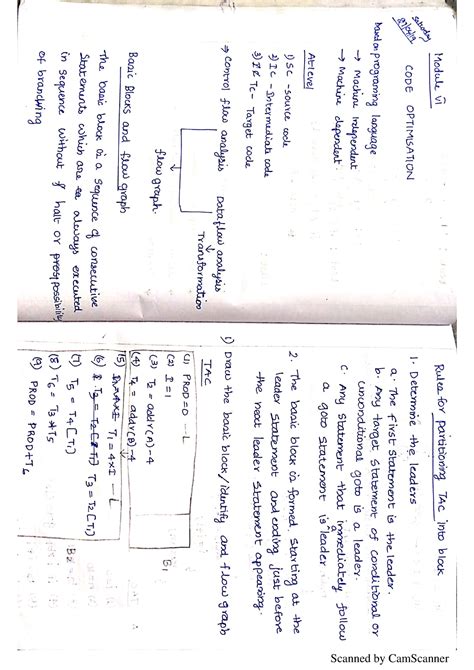 Saturday
Module VI
CODE OPTIMISATION
based on programming language
→ Machine Independent
→ Machine dependent.
At level
1) SC - source code
2) IC - Intermediate code
3) Tc - Target code
⇒ Control flow analysis Data flow analysis
Transformation
flow graph.
Basic Blocks and flow graph
The basic block is a sequence of consecutive
statements which are always executed
in sequence without halt or possibility
of branching
Rules for partitioning TAC into block
1. Determine the leaders
a. The first statement is the leader.
b. Any target statement of conditional or
unconditional goto is a leader.
c. Any statement that immediately follow
a goto statement is a leader
2. The basic block is formed starting at the
leader statement and ending just before
the next leader statement appearing.
1) Draw the basic block/identify and flow graph
TAC
(1) PROD=0 -L
(2) I=1
(3) T2 = addr(A)-4
(4) T4 = addr(B)-4
B1
(5) T1 = 4×I -L
(6) T3 = T2[T1]
(7) T5 = T4[T1]
(8) T6 = T3*T5
(9) PROD = PROD+T6
B2
Scanned by CamScanner